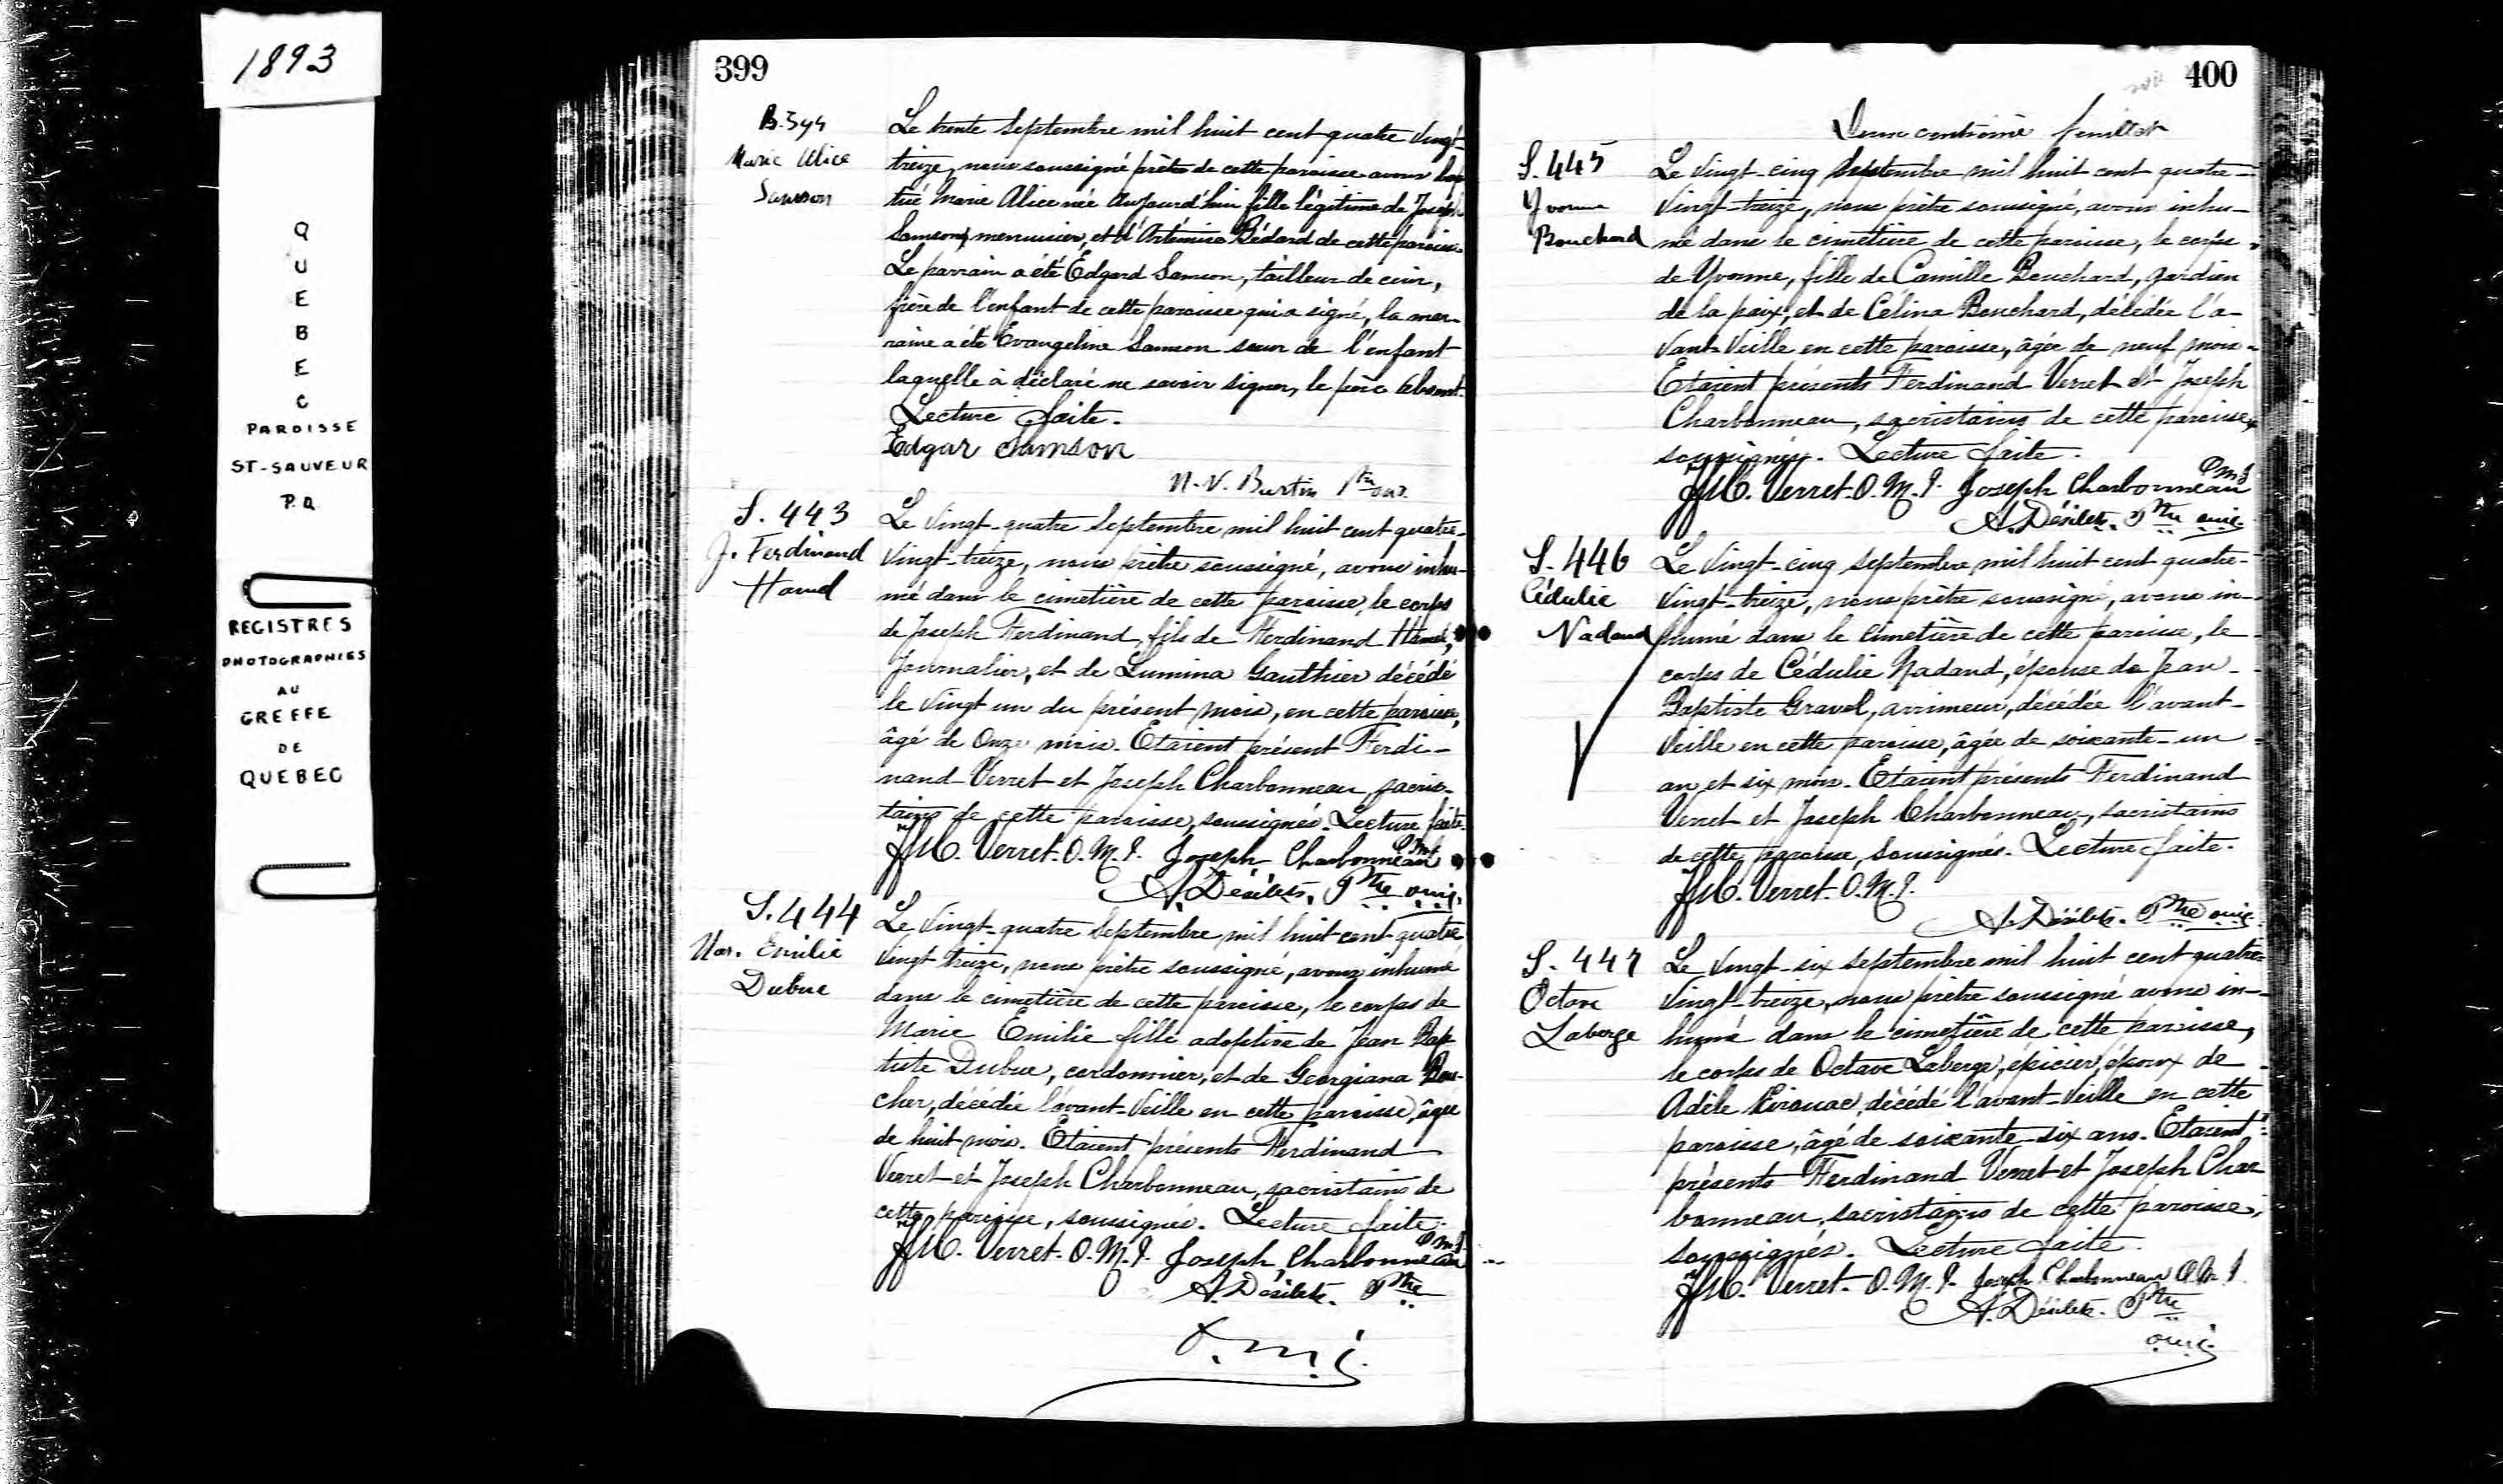 1893
QUEBEC
PAROISSE
ST-SAUVEUR
P.Q
REGISTRES
PHOTOGRAPHIES
AU
GREFFE
DE
QUEBEC
399
B.
Marie Alice
Samson
Le trente Septembre mil huit cent quatre vingt-
treize, nous soussigné prêtre de cette paroisse avons bap
tisé Marie Alice née aujourd'hui fille légitime de Joseph
Samson, menuisier, et d'Artémise Bédard de cette paroisse.
Le parrain a été Edgard Samson, tailleur de cuir,
frère de l'enfant de cette paroisse qui a signé, la mar-
raine a été Evangeline Samson sœur de l'enfant
laquelle a déclaré ne savoir signer, le père absent.
Lecture faite.
Edgar Samson
N. V. Burtin Ptre o.m.i.
S. 443
J. Ferdinand
Hamel
Le Vingt-quatre Septembre mil huit cent quatre-
vingt-treize, nous prêtre soussigné, avons inhu-
mé dans le cimetière de cette paroisse, le corps
de Joseph Ferdinand, fils de Ferdinand Hamel,
journalier, et de Lumina Gauthier décédé
le vingt un du présent mois, en cette paroisse,
âgé de Onze mois. Etaient présent Ferdi-
nand Verret et Joseph Charbonneau, sacris-
tains de cette paroisse, soussignés. Lecture faite.
Verret. O.M.I. Joseph Charbonneau O.M.I.
A. Désilets, Ptre o.m.i.
S. 444
Mar. Emilie
Dubuc
Le Vingt-quatre Septembre mil huit cent quatre
vingt treize, nous prêtre soussigné, avons inhumé
dans le cimetière de cette paroisse, le corps de
Marie Emilie fille adoptive de Jean Bap
tiste Dubuc, cordonnier, et de Georgiana Bou-
cher, décédée l'avant-veille en cette paroisse, âgée
de huit mois. Etaient présents Ferdinand
Verret et Joseph Charbonneau, sacristains de
cette paroisse, soussignés. Lecture faite.
Verret. O.M.I. Joseph Charbonneau O.M.I.
A. Désilets. Ptre
o.m.i.
400
Deux centième feuillet
S. 445
Yvonne
Bouchard
Le Vingt-cinq Septembre mil huit cent quatre-
vingt-treize, nous prêtre soussigné, avons inhu-
mé dans le cimetière de cette paroisse, le corps
de Yvonne, fille de Camille Bouchard, gardien
de la paix, et de Célina Bouchard, décédée l'a-
vant-veille en cette paroisse, âgée de neuf mois.
Etaient présents Ferdinand Verret et Joseph
Charbonneau, sacristains de cette paroisse,
soussignés. Lecture faite.
Verret. O.M.I. Joseph Charbonneau O.M.I.
A. Désilets. Ptre o.m.i.
S. 446
Cédulie
Nadaud
Le Vingt-cinq septembre mil huit cent quatre-
vingt-treize, nous prêtre soussigné, avons in-
humé dans le cimetière de cette paroisse, le
corps de Cédulie Nadaud, épouse de Jean-
Baptiste Gravel, arrimeur, décédée l'avant-
veille en cette paroisse, âgée de soixante-un
an et six mois. Etaient présents Ferdinand
Verret et Joseph Charbonneau, sacristains
de cette paroisse, soussignés. Lecture faite.
Verret. O.M.I.
A. Désilets. Ptre o.m.i.
S. 447
Octave
Laberge
Le Vingt-six septembre mil huit cent quatre-
vingt-treize, nous prêtre soussigné avons in-
humé dans le cimetière de cette paroisse,
le corps de Octave Laberge, épicier, époux de
Adèle Kirouac, décédé l'avant-veille en cette
paroisse, âgé de soixante-six ans. Etaient
présents Ferdinand Verret et Joseph Char
bonneau, sacristains de cette paroisse,
soussignés. Lecture faite.
Verret. O.M.I. Joseph Charbonneau O.M.I.
A. Désilets. Ptre
o.m.i.